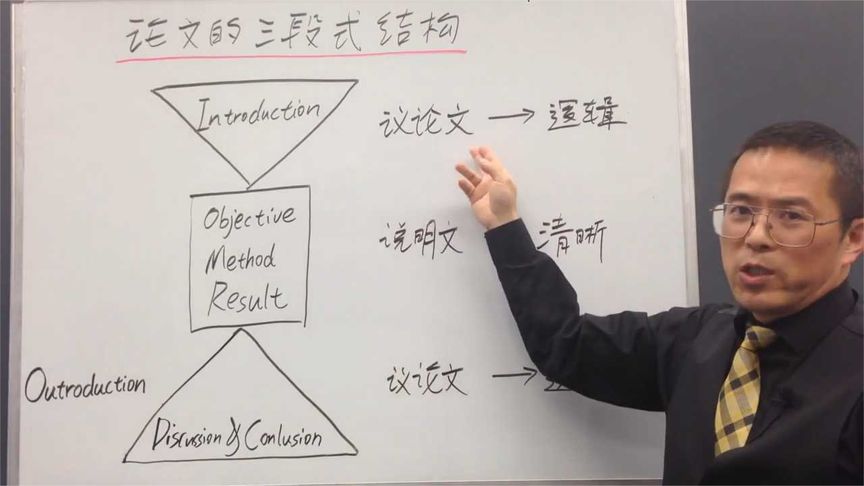 论文的三段式结构
Introduction
议论文 → 逻辑
Objective
Method
Result
说明文 清晰
Outroduction
Discussion & Conlusion
议论文 →